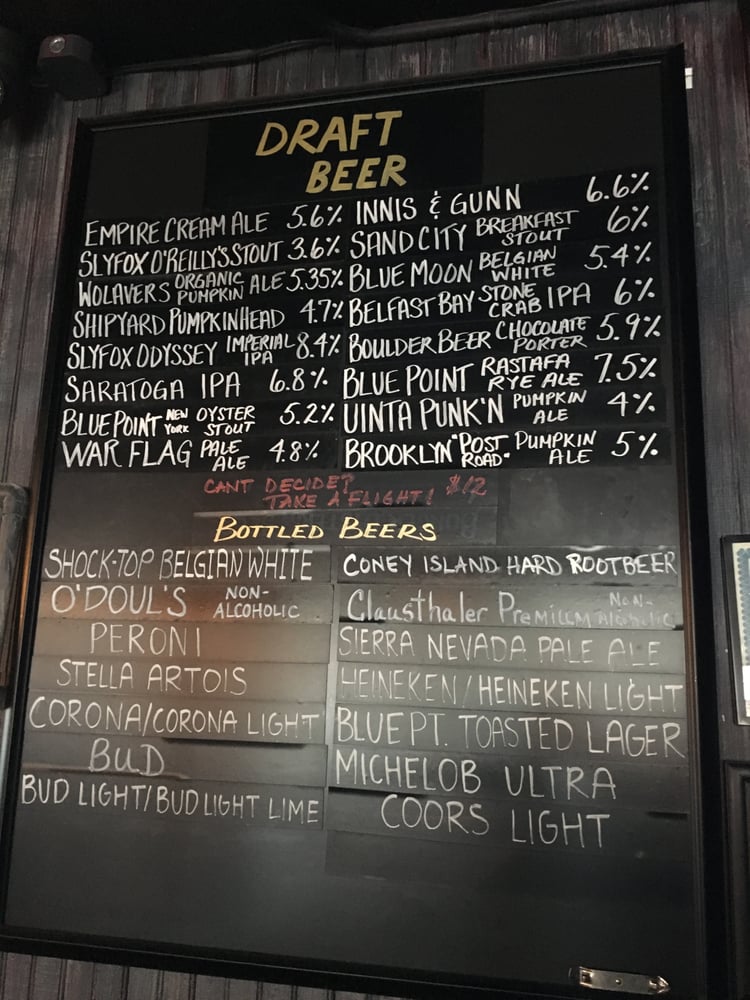 DRAFT
BEER
EMPIRE CREAM ALE 5.6%
SLYFOX O'REILLY'S STOUT 3.6%
WOLAVERS ORGANIC PUMPKIN ALE 5.35%
SHIPYARD PUMPKINHEAD 4.7%
SLYFOX ODYSSEY IMPERIAL IPA 8.4%
SARATOGA IPA 6.8%
BLUE POINT NEW YORK OYSTER STOUT 5.2%
WAR FLAG PALE ALE 4.8%
INNIS & GUNN 6.6%
SAND CITY BREAKFAST STOUT 6%
BLUE MOON BELGIAN WHITE 5.4%
BELFAST BAY STONE CRAB IPA 6%
BOULDER BEER CHOCOLATE PORTER 5.9%
BLUE POINT RASTAFA RYE ALE 7.5%
UINTA PUNK'N PUMPKIN ALE 4%
BROOKLYN "POST ROAD" PUMPKIN ALE 5%
CANT DECIDE?
TAKE A FLIGHT! $12
BOTTLED BEERS
SHOCK-TOP BELGIAN WHITE
O'DOUL'S NON-ALCOHOLIC
PERONI
STELLA ARTOIS
CORONA/CORONA LIGHT
BUD
BUD LIGHT/BUD LIGHT LIME
CONEY ISLAND HARD ROOTBEER
Clausthaler Premium Non-Alcoholic
SIERRA NEVADA PALE ALE
HEINEKEN/HEINEKEN LIGHT
BLUE PT. TOASTED LAGER
MICHELOB ULTRA
COORS LIGHT